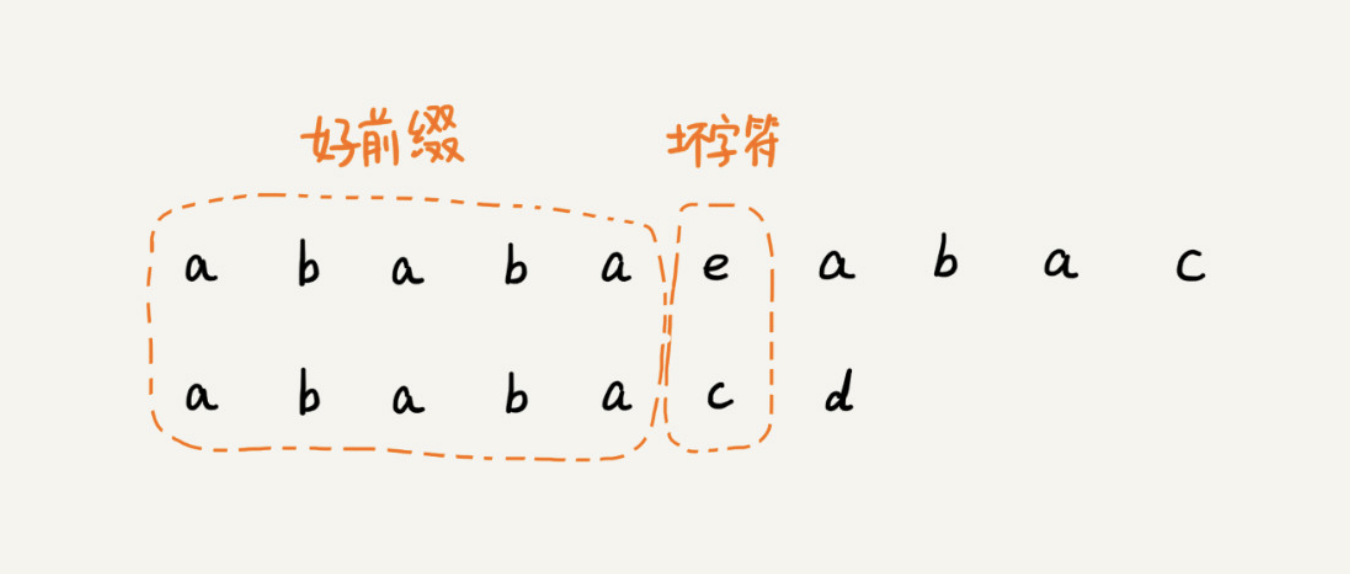 好前缀 坏字符
a b a b a e a b a c
a b a b a c d